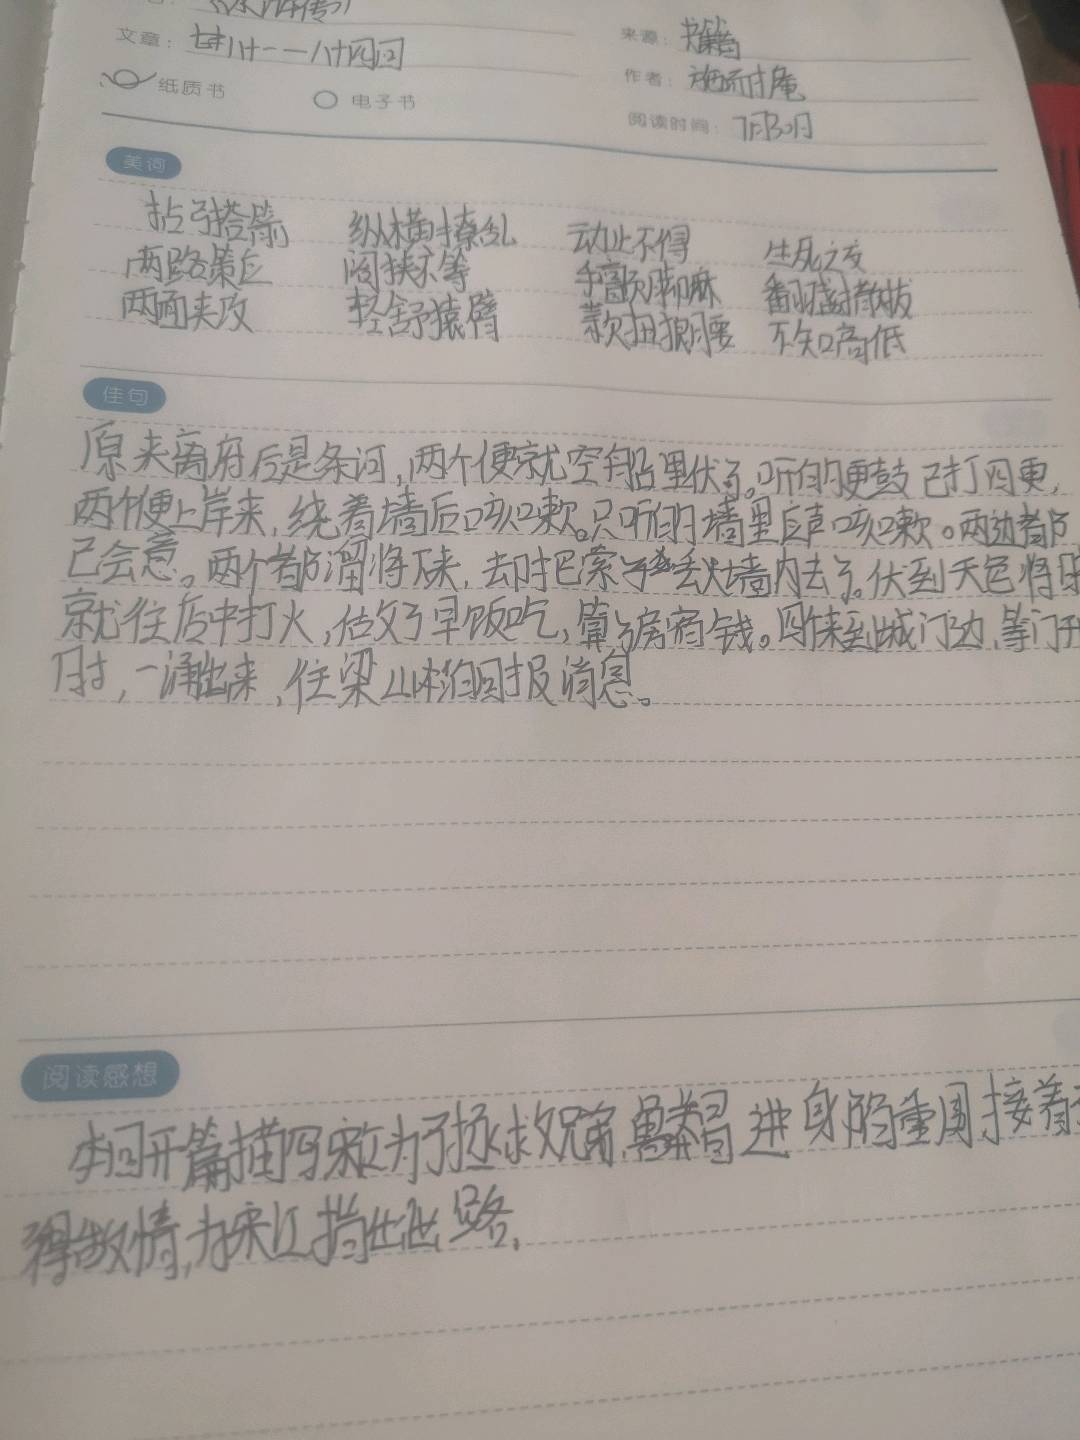 《水浒传》
文章： 八十一一八十四回
来源： 书籍
纸质书 电子书
作者： 施耐庵
阅读时间： 7月30月
美词
拈弓搭箭 纵横撩乱 动止不得 生死之交
两路策应 阔狭不等 手
两面夹攻 轻舒猿臂 款扭狼腰 不知高低
佳句
原来离府后是条河，两个便就空船里伏了。听的更鼓已打四更，
两个便上岸来，绕着墙后咳嗽。只听的墙里应声咳嗽。两边都
已会意。两个都溜将下来，却把索子丢入墙内去了。伏到天色将明
就往店中打火，做了早饭吃，算了房宿钱。四个来到城门边，等门开
时，一涌出来，往梁山泊回报消息。
阅读感想
本回开篇描写宋江为了拯救兄弟， 进 身陷重围接着
得故情，为宋江 路，